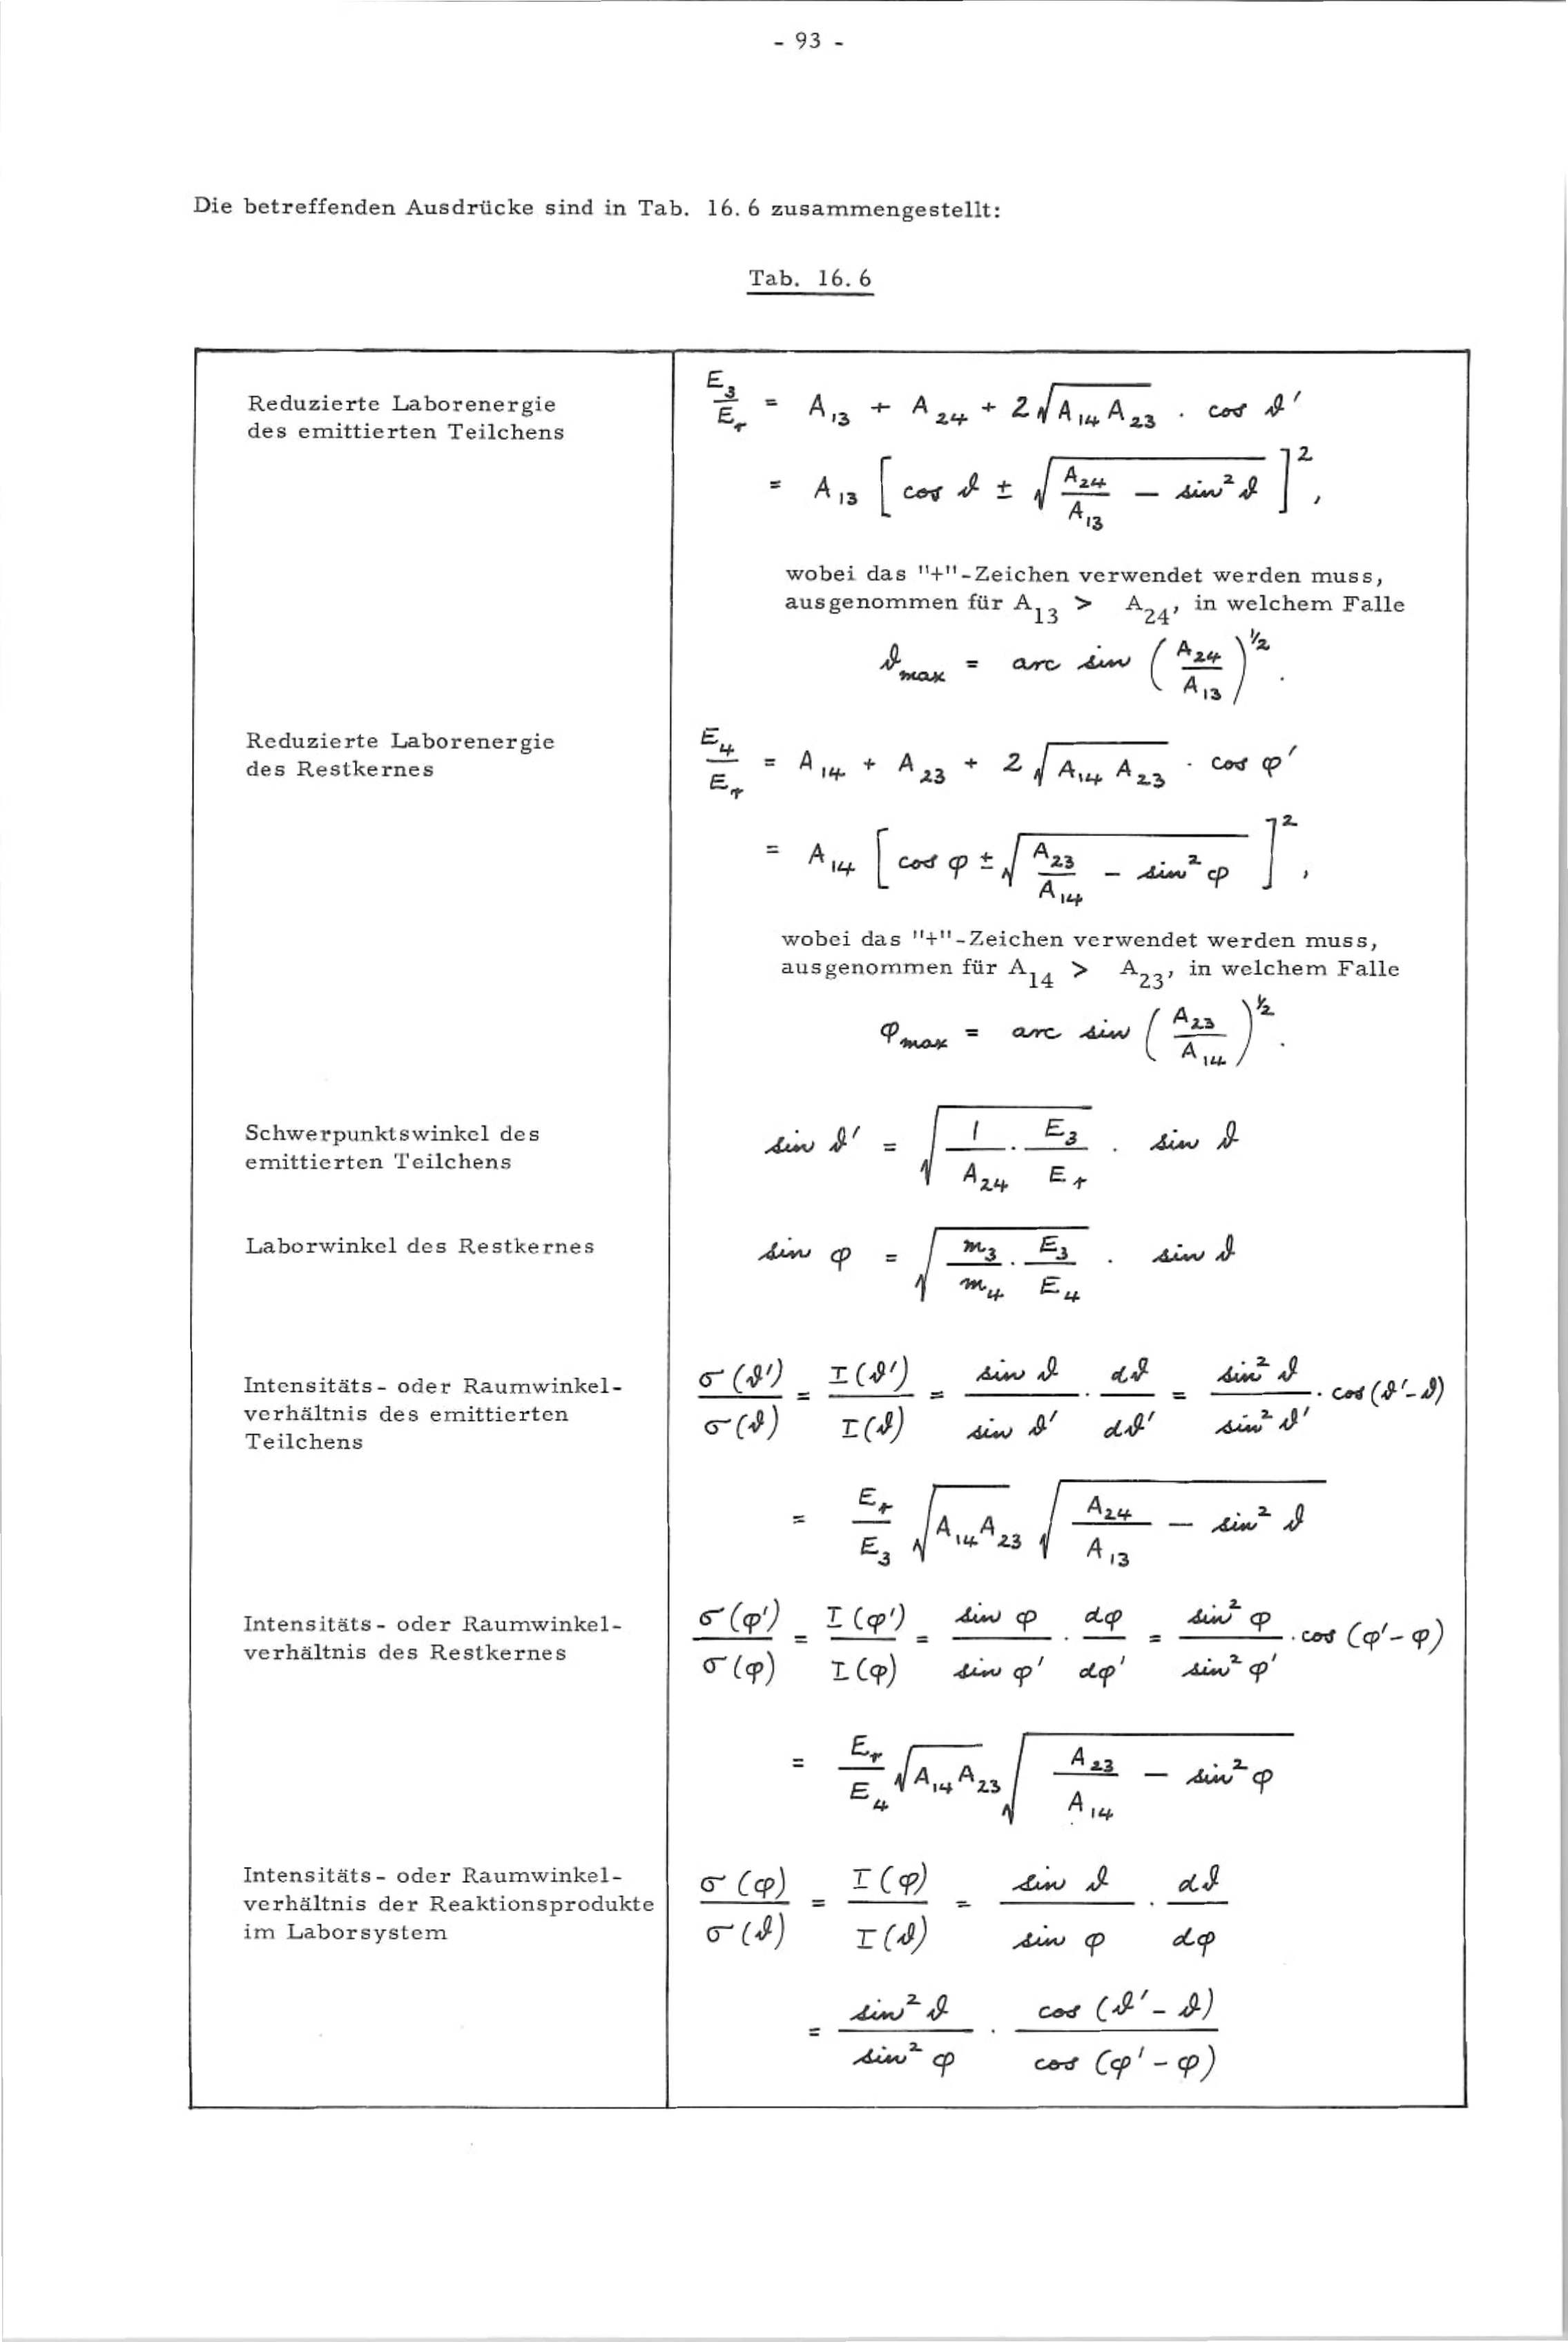 - 93 -
Die betreffenden Ausdrücke sind in Tab. 16.6 zusammengestellt:
Tab. 16.6
Reduzierte Laborenergie
des emittierten Teilchens
E₃/Eᵣ = A₁₃ + A₂₄ + 2√(A₁₄ A₂₃) · cos ϑ′
= A₁₃ [cos ϑ ± √(A₂₄/A₁₃ − sin² ϑ)]²,
wobei das "+"-Zeichen verwendet werden muss,
ausgenommen für A₁₃ > A₂₄, in welchem Falle
ϑmax = arc sin (A₂₄/A₁₃)^½.
Reduzierte Laborenergie
des Restkernes
E₄/Eᵣ = A₁₄ + A₂₃ + 2√(A₁₄ A₂₃) · cos φ′
= A₁₄ [cos φ ± √(A₂₃/A₁₄ − sin² φ)]²,
wobei das "+"-Zeichen verwendet werden muss,
ausgenommen für A₁₄ > A₂₃, in welchem Falle
φmax = arc sin (A₂₃/A₁₄)^½.
Schwerpunktswinkel des
emittierten Teilchens
sin ϑ′ = √(1/A₂₄ · E₃/Eᵣ) · sin ϑ
Laborwinkel des Restkernes
sin φ = √(m₃/m₄ · E₃/E₄) · sin ϑ
Intensitäts- oder Raumwinkel-
verhältnis des emittierten
Teilchens
σ(ϑ′)/σ(ϑ) = I(ϑ′)/I(ϑ) = sin ϑ/sin ϑ′ · dϑ/dϑ′ = sin² ϑ/sin² ϑ′ · cos(ϑ′−ϑ)
= Eᵣ/E₃ √(A₁₄A₂₃) √(A₂₄/A₁₃ − sin² ϑ)
Intensitäts- oder Raumwinkel-
verhältnis des Restkernes
σ(φ′)/σ(φ) = I(φ′)/I(φ) = sin φ/sin φ′ · dφ/dφ′ = sin² φ/sin² φ′ · cos (φ′−φ)
= Eᵣ/E₄ √(A₁₄A₂₃) √(A₂₃/A₁₄ − sin² φ)
Intensitäts- oder Raumwinkel-
verhältnis der Reaktionsprodukte
im Laborsystem
σ(φ)/σ(ϑ) = I(φ)/I(ϑ) = sin ϑ/sin φ · dϑ/dφ
= sin² ϑ/sin² φ · cos (ϑ′−ϑ)/cos (φ′−φ)